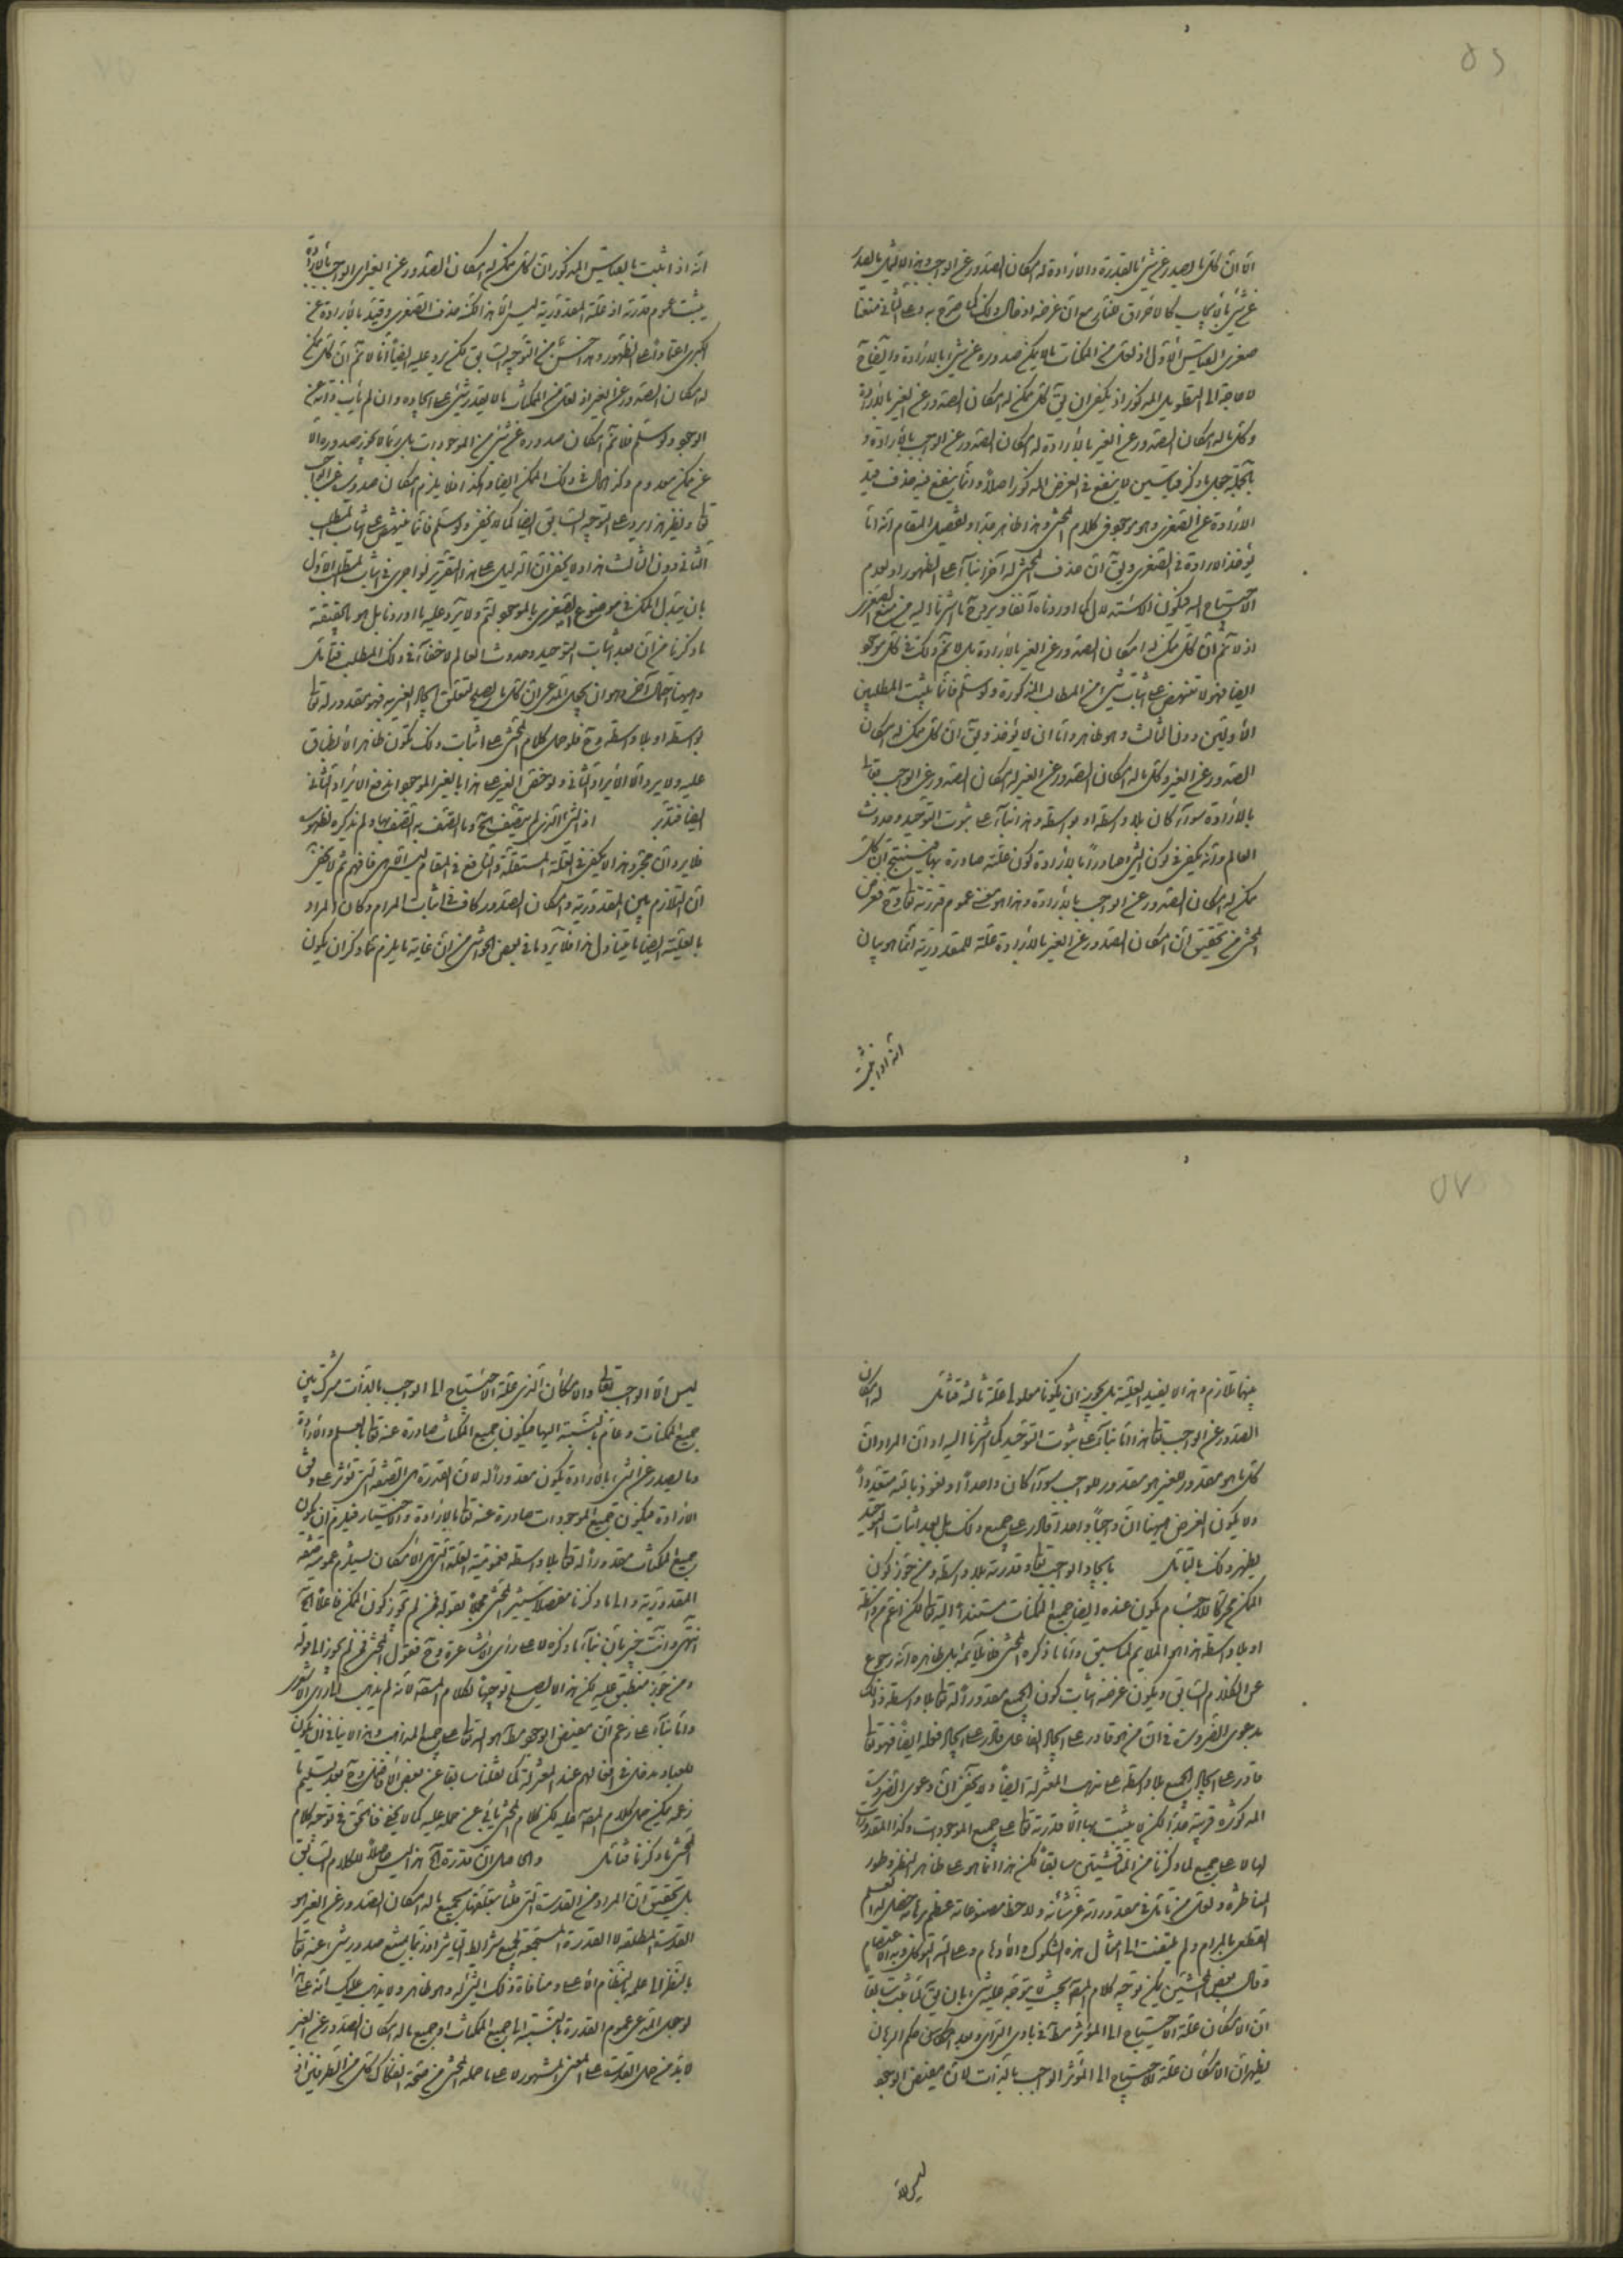 ٥٦
ان كل ما يصدر عن شئ بالقدرة والارادة له امكان الصدور عن الواجب وهذا لا يشمل ما يصدر
عن شئ بالايجاب كالاحراق للنار مع ان غرضه ادخال ذلك كما صرح به وعلى الثانى منعنا
صغرى القياس الاول اذ لعل من الممكنات ما لا يمكن صدوره عن شئ بالارادة وايضا ح
لا حاجة الى التطويل المذكور اذ يكفى ان يق كل ممكن له امكان الصدور عن الغير بالارادة
وكل ما له امكان الصدور عن الغير بالارادة له امكان الصدور عن الواجب بالارادة و
بالجملة جعل ما ذكر قياسين لا ينفع فى الغرض المذكور اصلا وانما ينفع فيه حذف قيد
الارادة عن الصغرى وهو موجود فى كلام المحشى وهذا ظاهر جدا وتفصيل المقام انه اما
يؤخذ الارادة فى الصغرى ويق ان حذف المحشى له آخرا بناء على الظهور او لعدم
الاحتياج اليه فيكون الاستدلال كما اوردناه آنفا ويرد ح ما اشرنا اليه من منع الصغرى
اذ لا تم ان كل ممكن له امكان الصدور عن الغير بالارادة بل لا تم ذلك فى كل موجود
ايضا فهو لا ينهض على اثبات شئ من المطالب المذكورة ولو سلم فانما يثبت المطلبين
الاولين دون الثالث وهو ظاهر واما ان لا يؤخذ ويق ان كل ممكن له امكان
الصدور عن الغير وكل ما له امكان الصدور عن الغير له امكان الصدور عن الواجب تعالى
بالارادة سواء كان بلا واسطة او بواسطة وهذا بناء على ثبوت التوحيد وحدوث
العالم وانه يكفى فى كون الشئ صادرا بالارادة كون علته صادرة بها فينتج ان كل
ممكن له امكان الصدور عن الواجب بالارادة وهذا هو معنى عموم قدرته تعالى وح فغرض
المحشى من تحقيق ان امكان الصدور عن الغير بالارادة علة للمقدورية انما هو بيان
انه اذا ثبت
انه اذا ثبت بالقياس المذكور ان كل ممكن له امكان الصدور عن الغير اى الواجب بالارادة
يثبت عموم قدرته اذ علة المقدورية ليس الا هذا لكنه حذف الصغرى وقيد بالارادة عن
الكبرى اعتمادا على الظهور وهذا احسن من التوجيه السابق لكن يرد عليه ايضا انا لا تم ان كل ممكن
له امكان الصدور عن الغير اذ لعل من الممكنات ما لا يقدر شئ على ايجاده وان لم يأب ذاته عن
الوجود ولو سلم فلا تم امكان صدوره عن شئ من الموجودات بل ربما لا يجوز صدوره الا
عن ممكن معدوم وكذا الحال فى ذلك الممكن ايضا وهكذا فلا يلزم امكان صدوره عن الواجب
تعالى ونظير هذا يرد على التوجيه السابق ايضا كما لا يخفى ولو سلم فانما ينهض على اثبات المطلب
الثانى دون الثالث هذا ولا يخفى ان الدليل على هذا التقرير لو اجرى فى اثبات المطلب الاول
بان يبدل الممكن فى موضوع الصغرى بالموجود لتم ولا يرد عليه ما اوردنا بل هو بالحقيقة
ما ذكرنا من ان بعد اثبات التوحيد وحدوث العالم لا خفاء فى ذلك المطلب فتأمل
وههنا احتمال آخر وهو ان يجعل المدعى ان كل ما يصلح لتعلق ايجاد الغير به فهو مقدور له تعالى
بواسطة او بلا واسطة وح فلو حمل كلام المحشى على اثبات ذلك لكون ظاهر الانطباق
عليه ولا يرد الا الايراد الثانى ولو خص الغير على هذا بالغير الموجود اندفع الايراد الثانى
ايضا فتدبر اذ الشئ الذى لم يتصف بشئ وما اتصف به اتصف بها ولم يذكره لظهوره
فلا يرد ان مجرد هذا لا يكفى فى العلة المستقلة والنافع فى المقام ليس الا هى فافهم ثم لا يخفى
ان التلازم بين المقدورية وامكان الصدور كاف فى اثبات المرام وكان المراد
بالعلية ايضا ما يتناول هذا فلا يرد ما فى بعض الحواشى من ان غاية ما يلزم مما ذكر ان يكون
٥٧
بينهما تلازم وهذا لا يفيد العلية بل يجوز ان يكونا معلولى علة ثالثة فتأمل له امكان
الصدور عن الواجب تعالى هذا اما بناء على ثبوت التوحيد كما اشرنا اليه او ان المراد ان
كل ما هو مقدور للغير هو مقدور للواجب سواء كان واحدا او نعوذ بالله متعددا
ولا يكون الغرض ههنا ان واجبا واحدا قادر على جميع ذلك بل بعد اثبات التوحيد
يظهر ذلك بالتأمل بايجاد الواجب تعالى وقدرته بلا واسطة ومن جوز كون
الممكن موجدا للاجسام يكون عنده ايضا جميع الممكنات مستندة اليه تعالى لكن اعم من واسطة
او بلا واسطة هذا هو الملايم لما سبق واما ما ذكره المحشى فلا يلائمه بل ظاهره انه رجوع
عن الكلام السابق ويكون غرضه اثبات كون الجميع مقدورا له تعالى بلا واسطة وذلك
بدعوى الضرورة فى ان من هو قادر على ايجاد الفاعل قادر على ايجاد فعله ايضا فهو تعالى
قادر على ايجاد الجميع بلا واسطة على مذهب المعتزلة ايضا ولا يخفى ان دعوى الضرورة
المذكورة قريبة جدا لكن لا يثبت بها الا قدرته تعالى على جميع الموجودات وكذا المقدورات
لها لا على جميع ما ذكرنا من المناقشتين سابقا لكن هذا انما هو على ظاهر النظر وطور
المناظرة ولعل من تأمل فى مقدوراته عز شأنه ولاحظ مصنوعاته عظم برهانه حصل له العلم
القطعى بالمرام ولم يلتفت الى امثال هذه الشكوك والاوهام وعلى الله التوكل وبه الاعتصام
وقال بعض المحشين يمكن توجيه كلام المصنف بحيث لا يتوجه عليه شئ بان يق لما ثبت سابقا
ان الامكان علة الاحتياج الى المؤثر مطلقا فى بادى الرأى وبعد امعان حكم البرهان
يظهر ان الامكان علة الاحتياج الى المؤثر الواجب بالذات لان مفيض الوجود
ليس الا
ليس الا الواجب تعالى والامكان الذى علة الاحتياج الى الواجب بالذات مشترك بين
جميع الممكنات وعام بالنسبة اليها فيكون جميع الممكنات صادرة عنه تعالى بالعلم والارادة
وما يصدر عن الشئ بالارادة يكون مقدورا له لان القدرة هى الصفة التى تؤثر على وفق
الارادة فيكون جميع الموجودات صادرة عنه تعالى بالارادة والاختيار فيلزم ان يكون
جميع الممكنات مقدورا له تعالى بلا واسطة فعمومية العلة التى هى الامكان يستلزم عمومية صفة
المقدورية والى ما ذكرنا مفصلا يشير المحشى مجملا بقوله فمن لم يجوز كون الممكن فاعلا الخ
انتهى وانت خبير بان بناء ما ذكره لا على رأى الاشاعرة وح فقول المحشى فمن لم يجوز الى قوله
ومن جوز منطبق عليه لكن هذا لا يصلح توجيها لكلام المصنف لانه لم يذهب الى رأى الاشعرى
واما بناء على زعم ان مفيض الوجود مطلقا هو الله تعالى على جميع المذاهب وهذا لا ينافى ان يكون
للعباد مدخل فى افعالهم عند المعتزلة كما نقلنا سابقا عن بعض الافاضل وح بعد تسليم ما
زعمه يمكن حمل كلام المصنف عليه لكن كلام المحشى يأبى عن حمله عليه كما لا يخفى فالحق فى توجيه كلام
المحشى ما ذكرنا فتأمل والحاصل ان قدرة الخ هذا ليس حاصلا للكلام السابق
بل تحقيق ان المراد من القدرة التى قلنا بتعلقها بجميع ما له امكان الصدور عن الغير هو
القدرة المطلقة لا القدرة المستجمعة لجميع شرايط التأثير اذ ربما يمتنع صدور شئ عنه تعالى
بالنظر الى علمه بالنظام الاعلى ومنافاة ذلك الشئ له وهو ظاهر ولا يذهب عليك انه على هذا
لو جعل المدعى عموم القدرة بالنسبة الى جميع الممكنات او جميع ما له امكان الصدور عن الغير
لا بد من حمل القدرة على المعنى المشهور لا على ما حمله المحشى من صحة انفكاك كل من الطرفين اذ